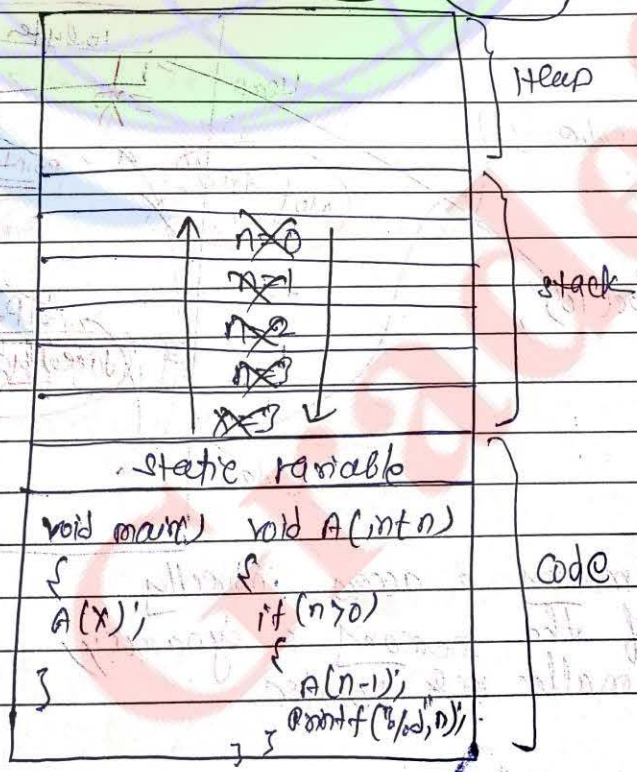 Heap
n=0
n=1
n=2
n=3
x=3
stack
static variable
void main() void A(int n)
{ {
A(x); if (n>0)
{
} A(n-1);
printf("%d", n);
} }
Code